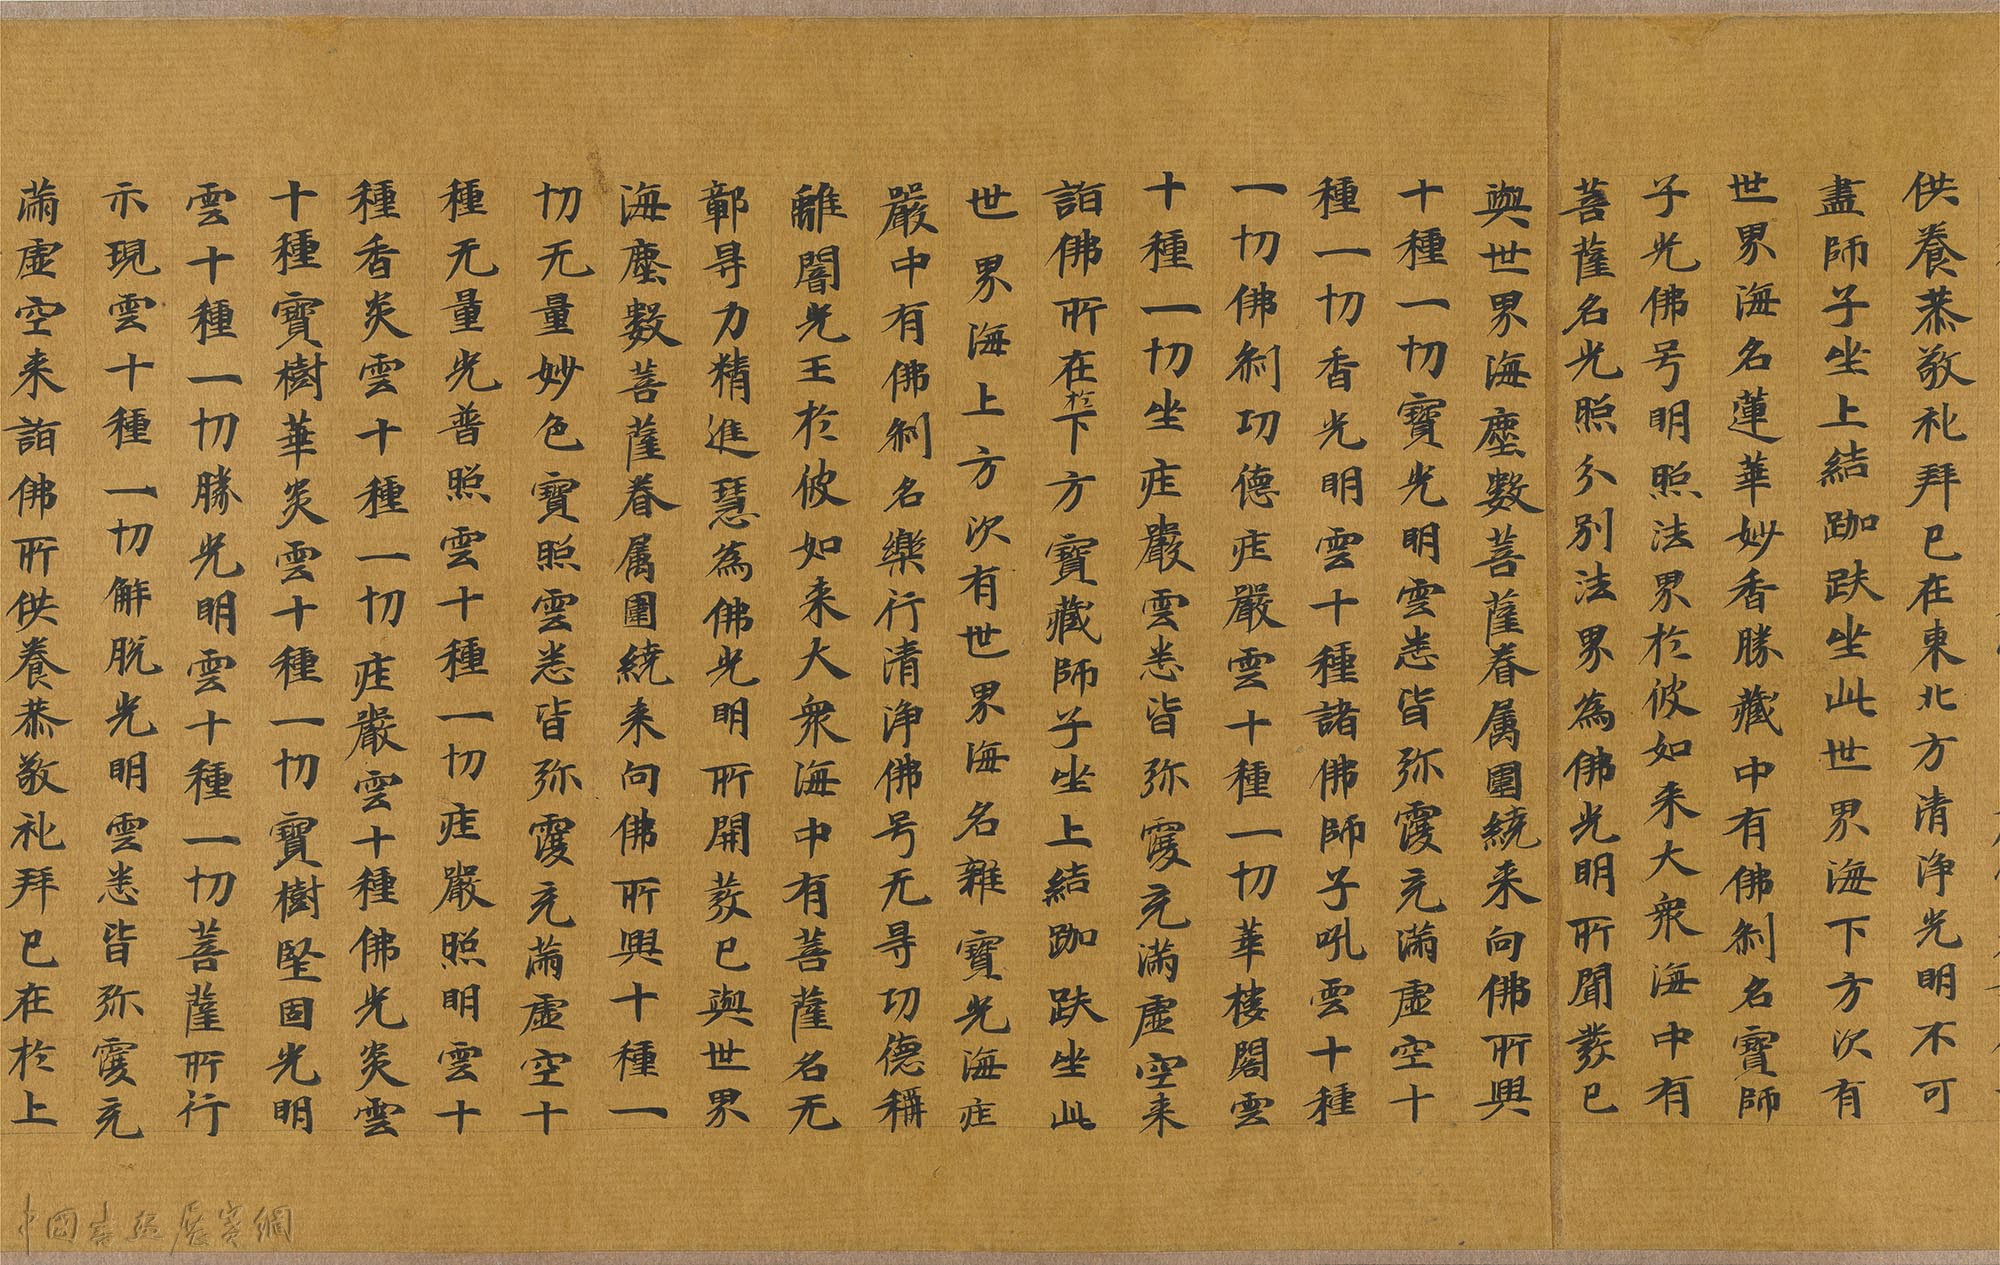 供養恭敬礼拜已在東北方清淨光明不可
盡師子坐上結跏趺坐此世界海下方次有
世界海名蓮華妙香勝藏中有佛刹名寶師
子光佛号明照法界於彼如来大衆海中有
菩薩名光照分別法界為佛光明所開發已
與世界海塵數菩薩眷属圍繞来向佛所興
十種一切寶光明雲悉皆弥覆充滿虚空十
種一切香光明雲十種諸佛師子吼雲十種
一切佛刹功德莊嚴雲十種一切華樓閣雲
十種一切坐莊嚴雲悉皆弥覆充滿虚空来
詣佛所在於下方寶藏師子坐上結跏趺坐此
世界海上方次有世界海名雜寶光海莊
嚴中有佛刹名樂行清淨佛号无㝵功德稱
離闇光王於彼如来大衆海中有菩薩名无
鄣㝵力精進慧為佛光明所開發已與世界
海塵數菩薩眷属圍繞来向佛所興十種一
切无量妙色寶照雲悉皆弥覆充滿虚空十
種无量光普照雲十種一切莊嚴照明雲十
種香炎雲十種一切莊嚴雲十種佛光炎雲
十種寶樹華炎雲十種一切寶樹堅固光明
雲十種一切勝光明雲十種一切菩薩所行
示現雲十種一切解脱光明雲悉皆弥覆充
滿虚空来詣佛所供養恭敬礼拜已在於上
中國書法展賽網